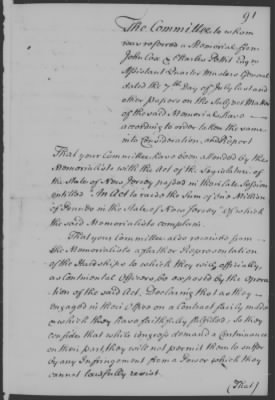 91
The Committee to whom
was referred a Memorial from
John Cox & Charles Pettit Esqrs
Assistant Quarter Masters General
dated the 7th Day of July last and
other papers on the Subject Matter
of the said Memorial have
according to order taken the same
into Consideration, and Report
That your Committee have been attended by the
Memorialists with the Act of the Legislature of
the State of New Jersey passed in their late Session
entitled An Act to raise the Sum of One Million
of Pounds in the State of New Jersey of which
the said Memorialists complain.
That your Committee also received from
the Memorialists a further Representation
of the Hardships to which they will, officially,
as Continental Officers, be exposed by the Opera
tion of the said Act, Declaring that as they
engaged in their Offices on a Contract fairly made
& which they have faithfully fulfilled. So they
confide that while Congress demand a Continuance
on their part, they will not permit them to suffer
by any Infringement from a Power which they
cannot lawfully resist.
(That)